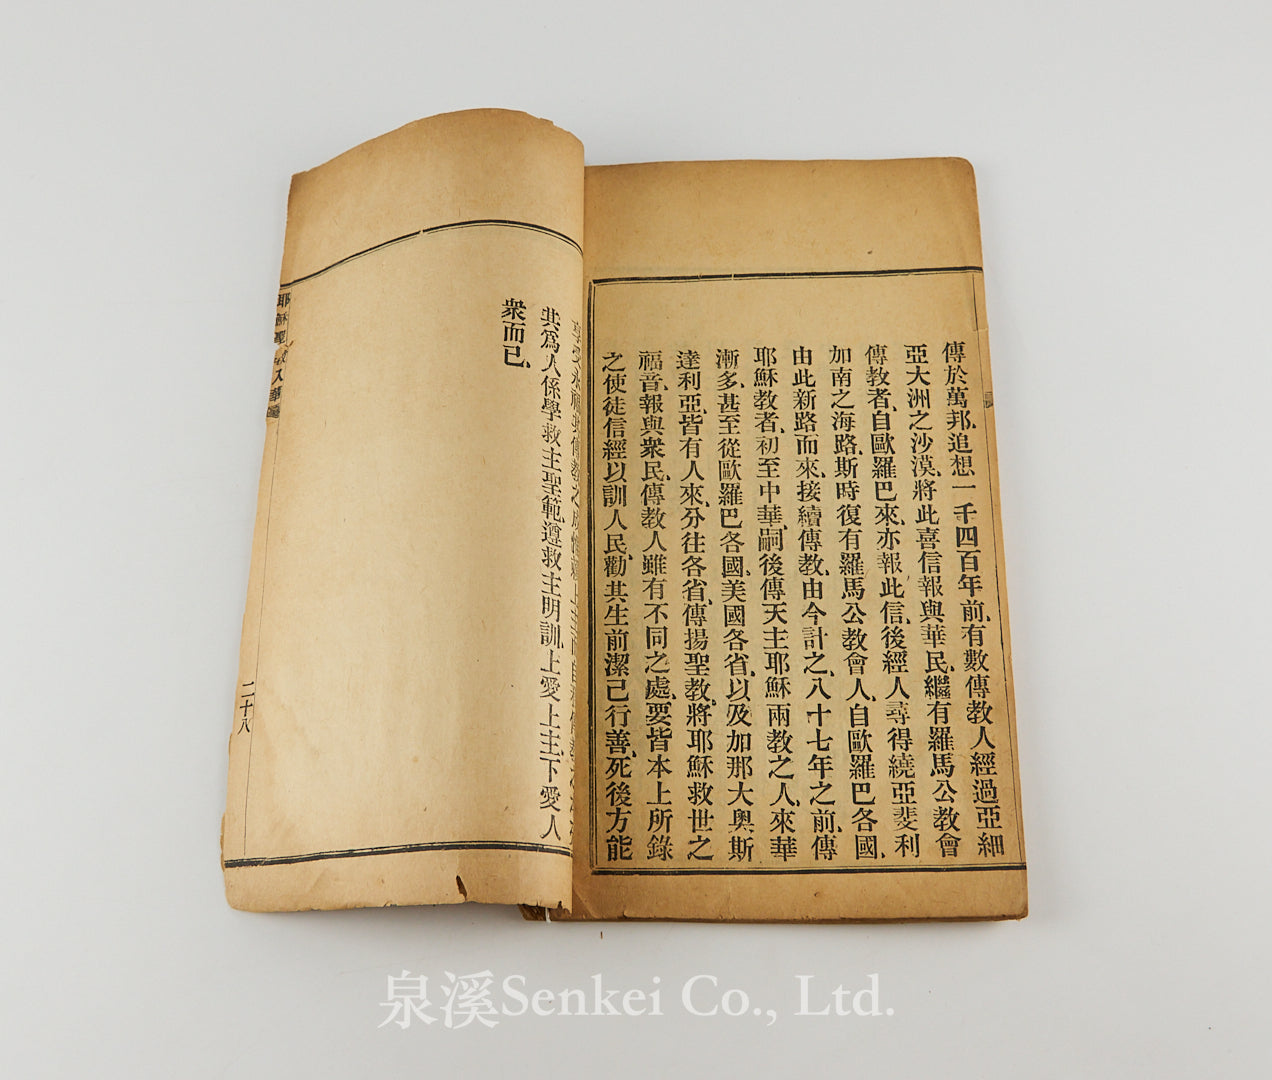 傳於萬邦、追想一千四百年前、有數傳教人經過亞細
亞大洲之沙漠、將此喜信報與華民、繼有羅馬公教會
傳教者、自歐羅巴來、亦報此信、後經人尋得繞亞斐利
加南之海路、斯時復有羅馬公教會人、自歐羅巴各國、
由此新路而來、接續傳教、由今計之、八十七年之前、傳
耶穌教者、初至中華、嗣後傳天主耶穌兩教之人、來華
漸多、甚至從歐羅巴各國、美國各省、以及加那大奧斯
達利亞、皆有人來、分往各省、傳揚聖教、將耶穌救世之
福音、報與衆民、傳教人雖有不同之處、要皆本上所錄
之使徒信經以訓人民、勸其生前潔己行善、死後方能
其爲人係學救主聖範、遵救主明訓、上愛上主、下愛人
衆而已、
耶穌聖教入華
二十八
泉溪Senkei Co., Ltd.